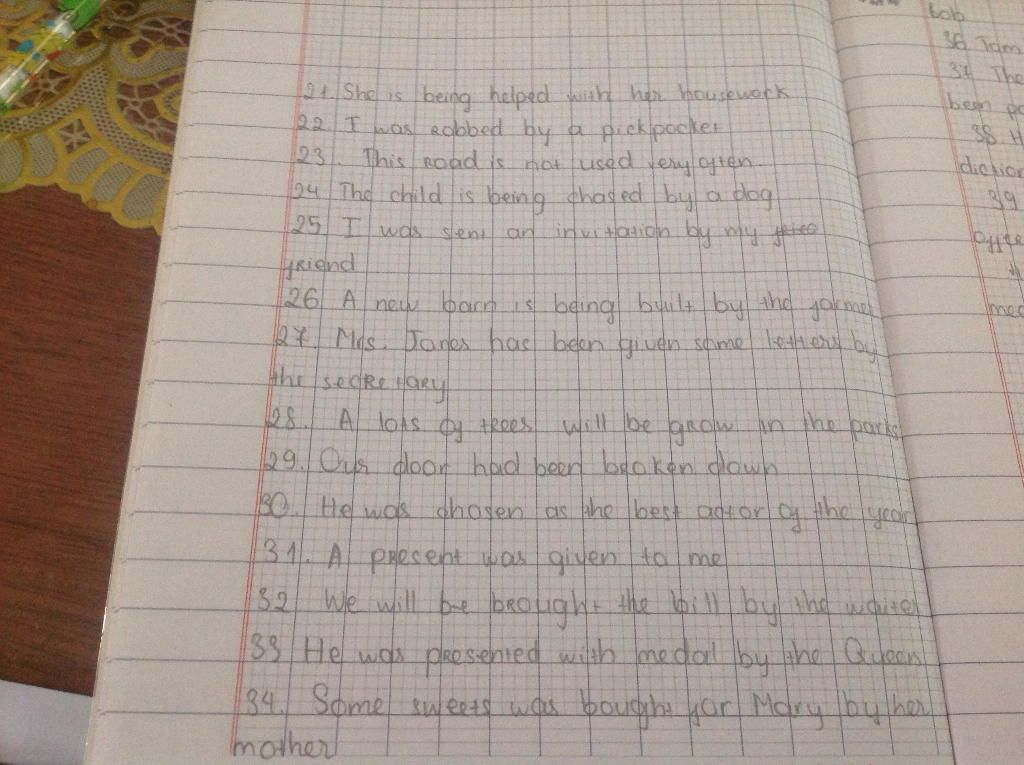 21. She is being helped with her housework
22. I was robbed by a pickpocket
23. This road is not used very often.
24 The child is being chased by a dog
25. I was sent an invitation by my
friend
26 A new barn is being built by the farmer
27. Mrs. Jones has been given some letters by
the secretary
28. A lots of trees will be grow in the parks
29. Our door had been broken down
30. He was chosen as the best actor of the year
31. A present was given to me
32 We will be brought the bill by the waiter
33 He was presented with medal by the Queen
34. Some sweets was bought for Mary by her
mother
bob
36 Tom
37 The
been
38. H
39